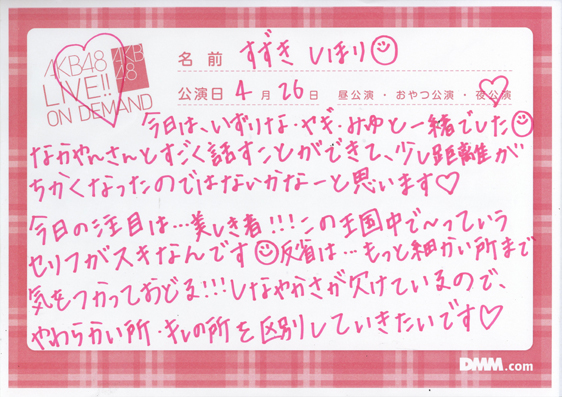 AKB48
LIVE!!
ON DEMAND
AKB
48
名前 すずき しほり
公演日 4月26日 昼公演・おやつ公演・夜公演
今日は、いずりな・ヤギ・みゆと一緒でした
なかやんさんとすごく話すことができて、少し距離が
ちかくなったのではないかなーと思います♡
今日の注目は…美しき者!!!この王国中で〜っていう
セリフがスキなんです 反省は…もっと細かい所まで
気をつかっておどる!!!しなやかさが欠けているので、
やわらかい所・キレの所を区別していきたいです♡
DMM.com